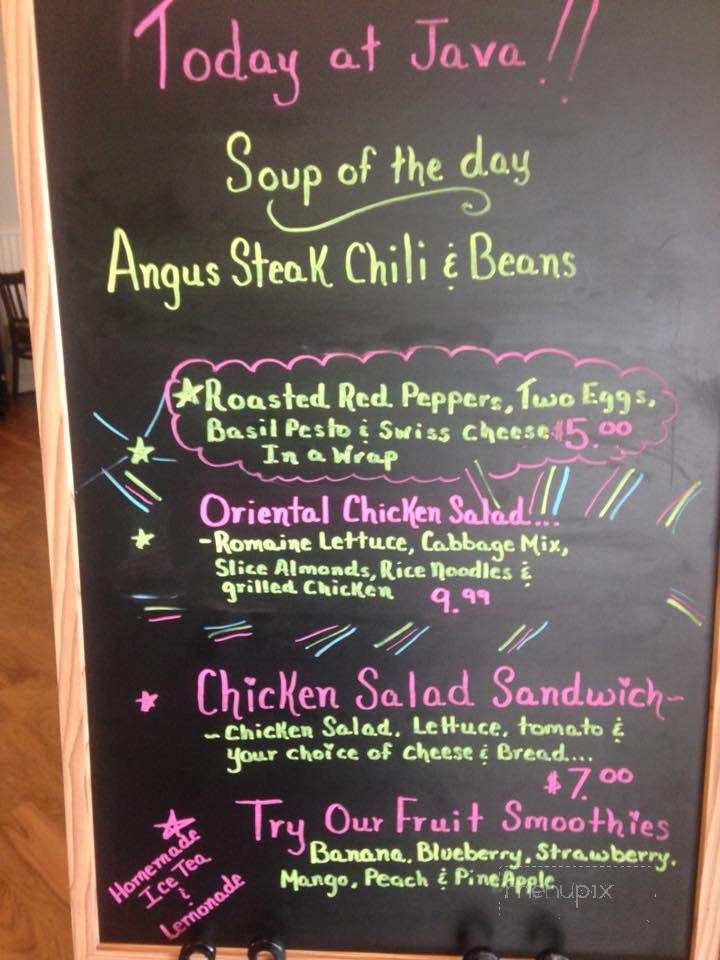 Today at Java!!
Soup of the day
Angus Steak Chili & Beans
Roasted Red Peppers, Two Eggs,
Basil Pesto & Swiss Cheese $5.00
In a Wrap
Oriental Chicken Salad...
-Romaine Lettuce, Cabbage Mix,
Slice Almonds, Rice Noodles &
grilled Chicken 9.99
Chicken Salad Sandwich-
- Chicken Salad, Lettuce, tomato &
your choice of cheese & Bread....
$7.00
Try Our Fruit Smoothies
Banana, Blueberry, Strawberry,
Mango, Peach & PineApple
Homemade
Ice Tea
&
Lemonade
menupix